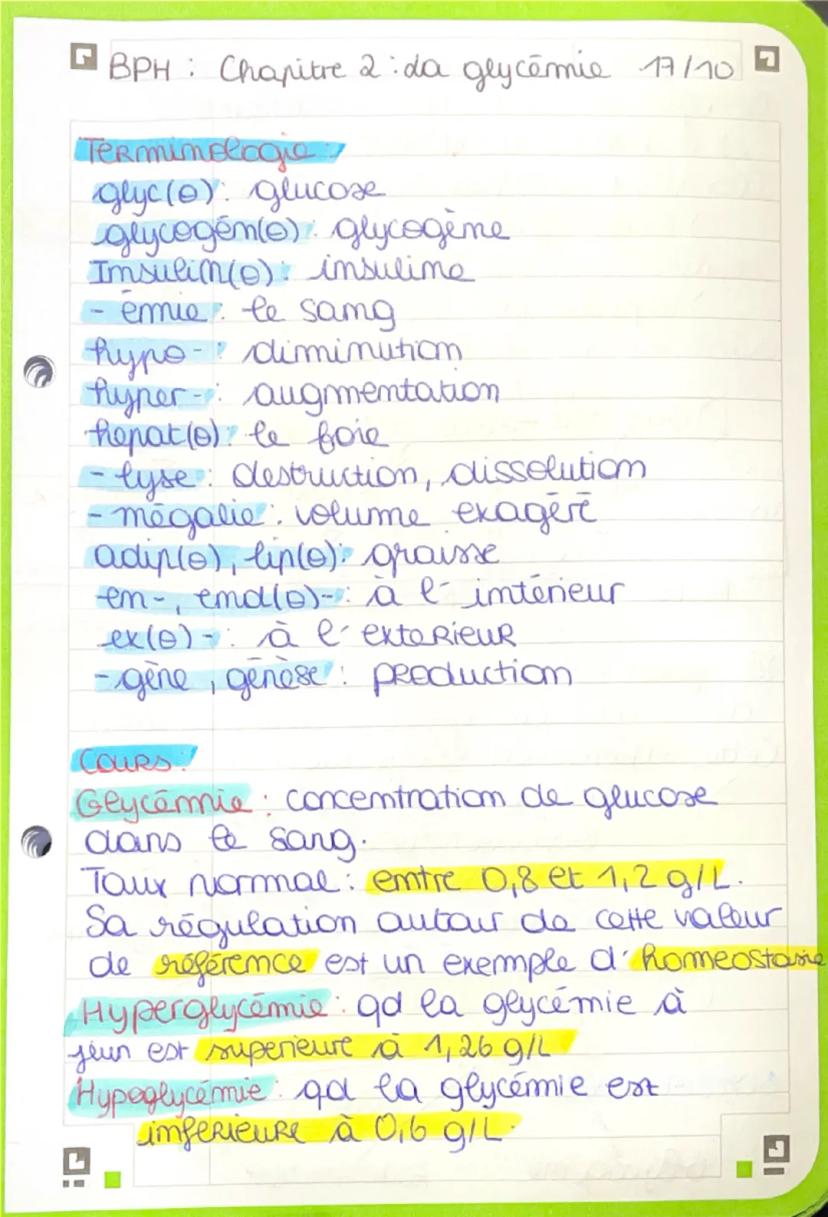 BPH : Chapitre 2 : La glycémie 17/10
Terminologie :
glyc(o) : glucose
glycogén(o) : glycogène
Insulin(o) : insuline
- émie : le sang
hypo- : diminution
hyper- : augmentation
hépat(o) : le foie
- lyse : destruction, dissolution
- mégalie : volume exagéré
adip(o), lip(o) : graisse
en-, end(o)- : à l'intérieur
ex(o)- : à l'exterieur
- gène, génèse : production
Cours :
Glycémie : concentration de glucose
dans le sang.
Taux normal : entre 0,8 et 1,2 g/L.
Sa régulation autour de cette valeur
de référence est un exemple d'homeostasie
Hyperglycémie : qd la glycémie à
jeun est superieure à 1,26 g/L
Hypoglycémie : qd la glycémie est
inferieure à 0,6 g/L.